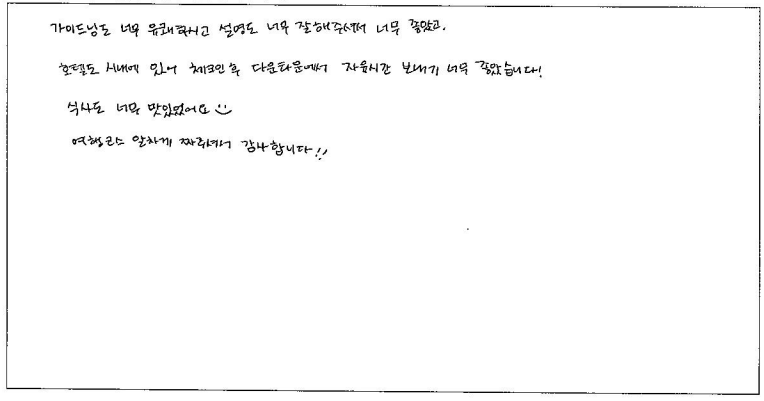 가이드님도 너무 유쾌하시고 설명도 너무 잘해주셔서 너무 좋았고,
호텔도 시내에 있어 체크인 후 다운타운에서 자유시간 보내기 너무 좋았습니다!
식사도 너무 맛있었어요 :)
여행코스 알차게 짜주셔서 감사합니다!!